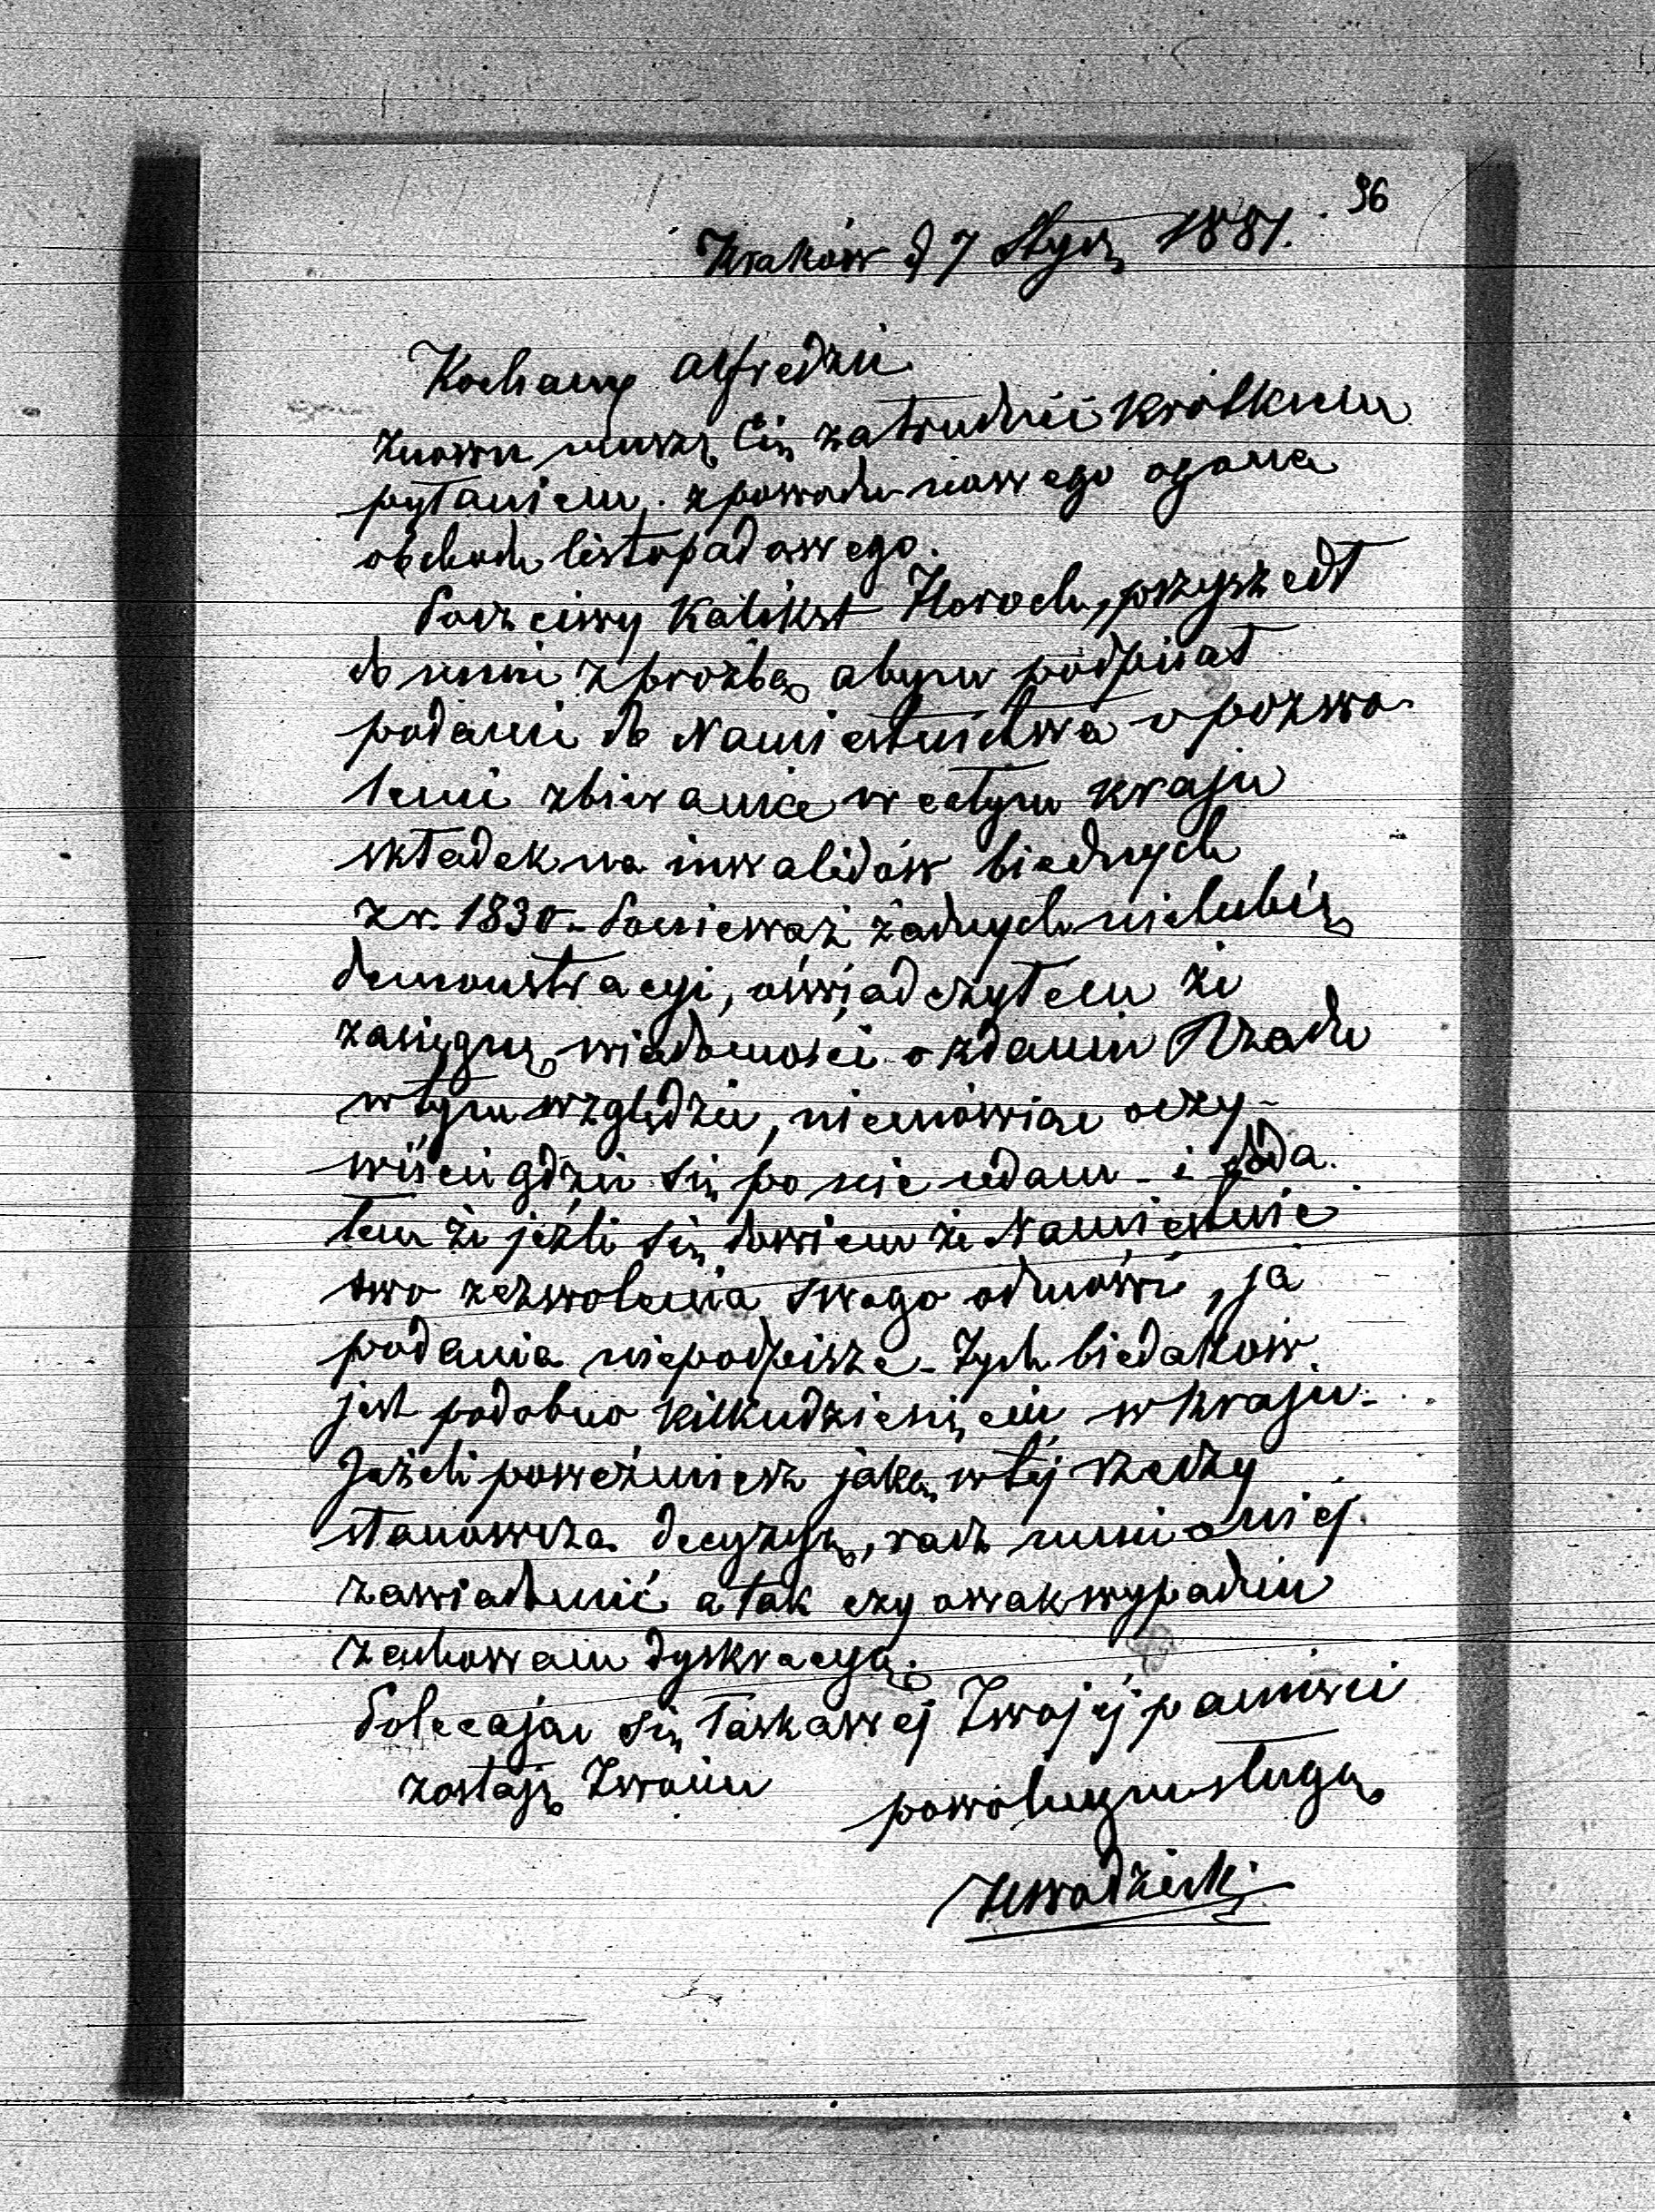 96
Kraków d 7 Stycz 1881.
Kochany Alfredzie
Znowu muszę Cię zatrudnić krótkiem
pytaniem. z powodu nowego ogona
obchodu listopadowego.
Poczciwy Kalikst Horoch, przyszedł
do mnie z prożbą abym podpisał
podanie do Namiestnictwa o pozwo-
lenie zbierania w całym kraju
składek na inwalidów biednych
z r. 1830 - Ponieważ żadnych nielubię
demonstracyi, oświadczyłem że
zasięgnę wiadomości o zdaniu Rządu
w tym względzie, niemówiąc oczy-
wiście gdzie się po nie udam - i doda-
łem że jeżli się dowiem że Namiestnic
two zezwolenia swego odmówi, ja
podania niepodpisze - Tych biedaków
jest podobno kilkudziesięciu w kraju -
Jeżeli poweźmiesz jaką w téj rzeczy
stanowczą decyzyą, racz mnie o niej
zawiadomić a tak czy owak wypadnie
zachowam dyskrecyą.
Polecając się łaskawej Twojéj pamięci
zostaję Twoim
powolnym sługą